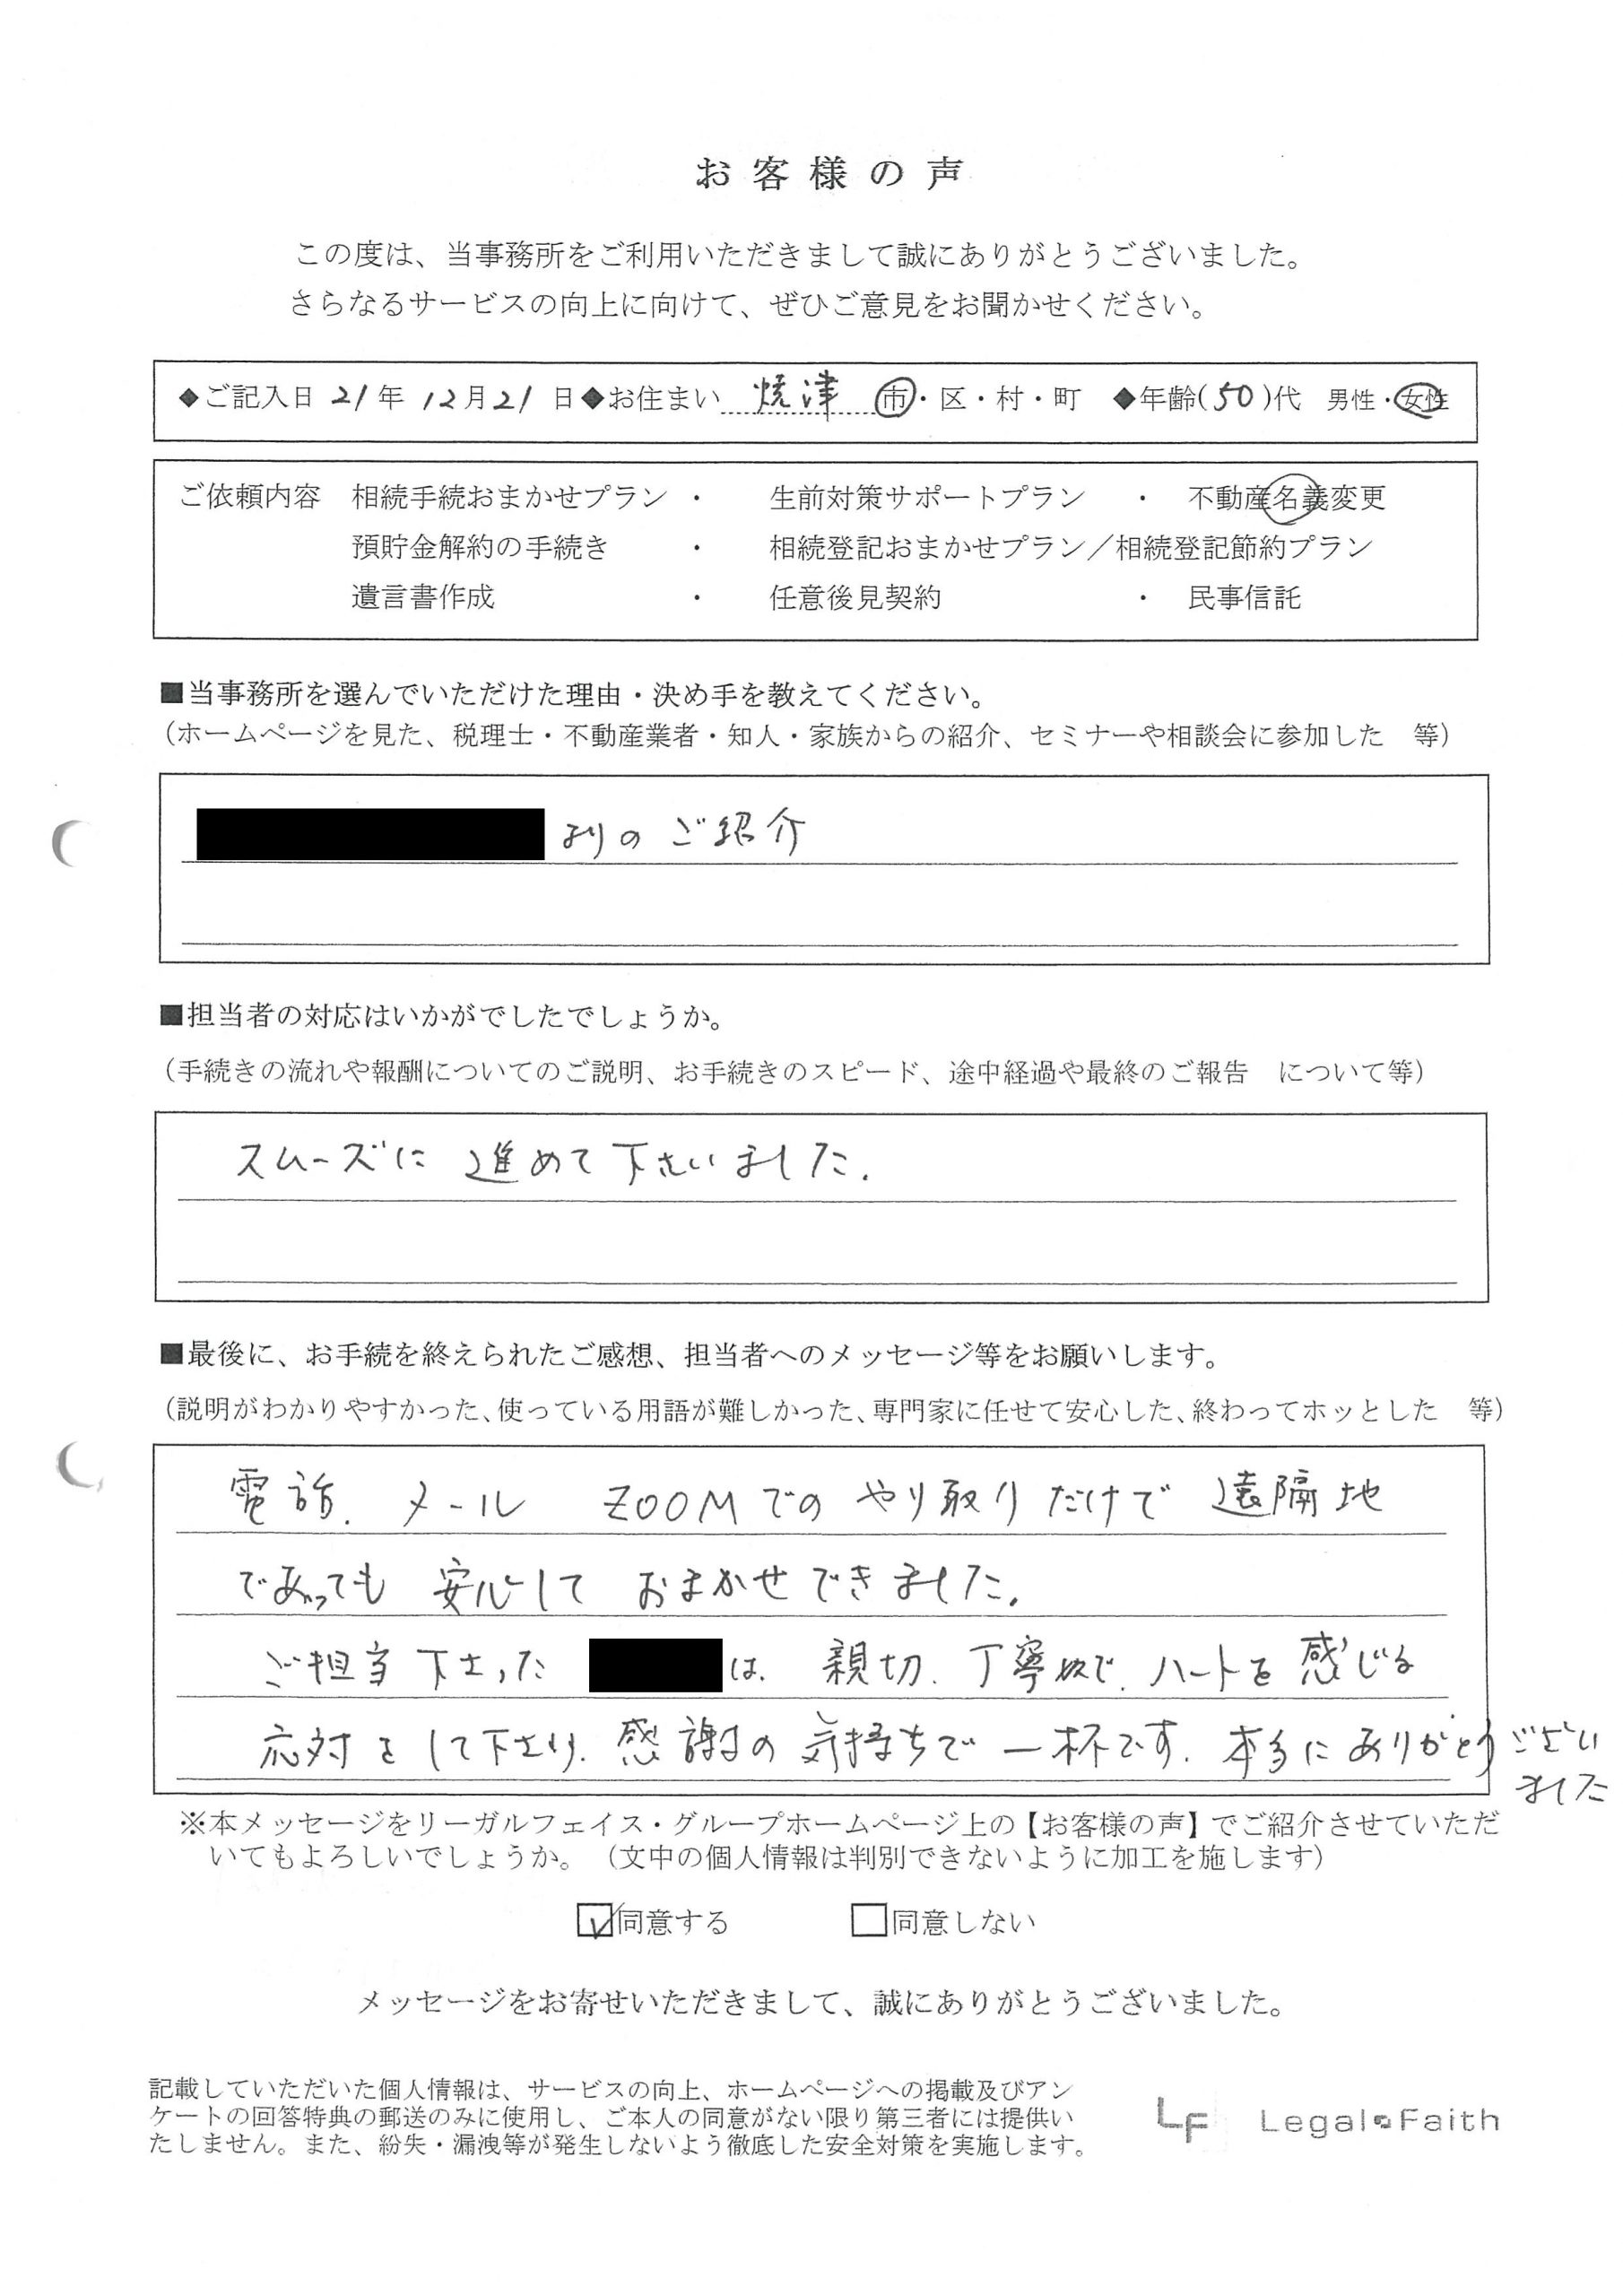 お客様の声
この度は、当事務所をご利用いただきまして誠にありがとうございました。
さらなるサービスの向上に向けて、ぜひご意見をお聞かせください。
◆ご記入日 21年 12月21日◆お住まい 焼津 市・区・村・町 ◆年齢(50)代 男性・女性
ご依頼内容 相続手続おまかせプラン ・ 生前対策サポートプラン ・ 不動産名義変更
預貯金解約の手続き ・ 相続登記おまかせプラン／相続登記節約プラン
遺言書作成 ・ 任意後見契約 ・ 民事信託
■当事務所を選んでいただけた理由・決め手を教えてください。
（ホームページを見た、税理士・不動産業者・知人・家族からの紹介、セミナーや相談会に参加した 等）
よりの ご紹介
■担当者の対応はいかがでしたでしょうか。
（手続きの流れや報酬についてのご説明、お手続きのスピード、途中経過や最終のご報告 について等）
スムーズに 進めて下さいました.
■最後に、お手続を終えられたご感想、担当者へのメッセージ等をお願いします。
（説明がわかりやすかった、使っている用語が難しかった、専門家に任せて安心した、終わってホッとした 等）
電話. メール ZOOMでの やり取りだけで 遠隔地
であっても 安心して おまかせできました.
ご担当下さった は. 親切. 丁寧で. ハートを感じる
応対をして下さり. 感謝の気持ちで一杯です. 本当にありがとうござい
ました
※本メッセージをリーガルフェイス・グループホームページ上の【お客様の声】でご紹介させていただ
いてもよろしいでしょうか。（文中の個人情報は判別できないように加工を施します）
☑同意する □同意しない
メッセージをお寄せいただきまして、誠にありがとうございました。
記載していただいた個人情報は、サービスの向上、ホームページへの掲載及びアン
ケートの回答特典の郵送のみに使用し、ご本人の同意がない限り第三者には提供い
たしません。また、紛失・漏洩等が発生しないよう徹底した安全対策を実施します。
LF Legal Faith